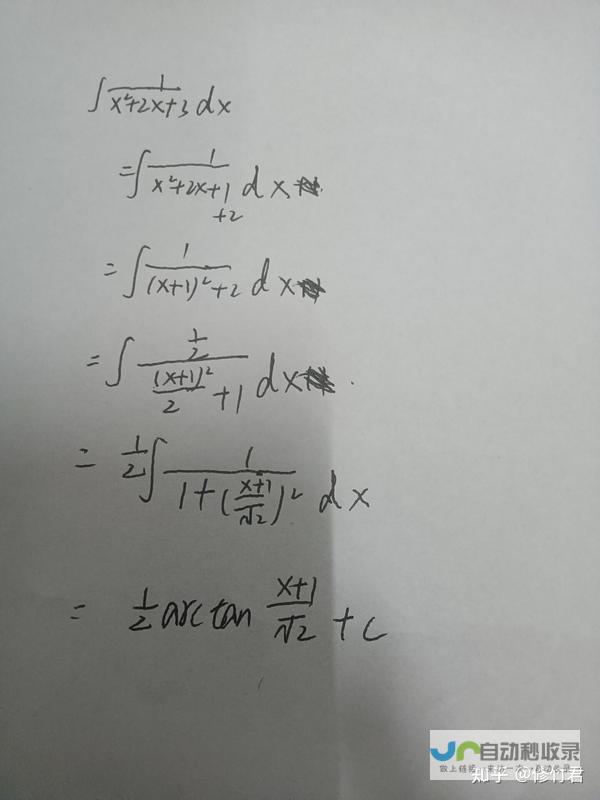 ∫ 1/(x²+2x+3) dx
= ∫ 1/(x²+2x+1+2) dx
= ∫ 1/((x+1)²+2) dx
= ∫ (1/2)/((x+1)²/2 + 1) dx
= 1/2 ∫ 1/(1+((x+1)/√2)²) dx
= 1/2 arctan (x+1)/√2 + C
自动秒收录
做上链接
自动收录
知乎 @修竹君